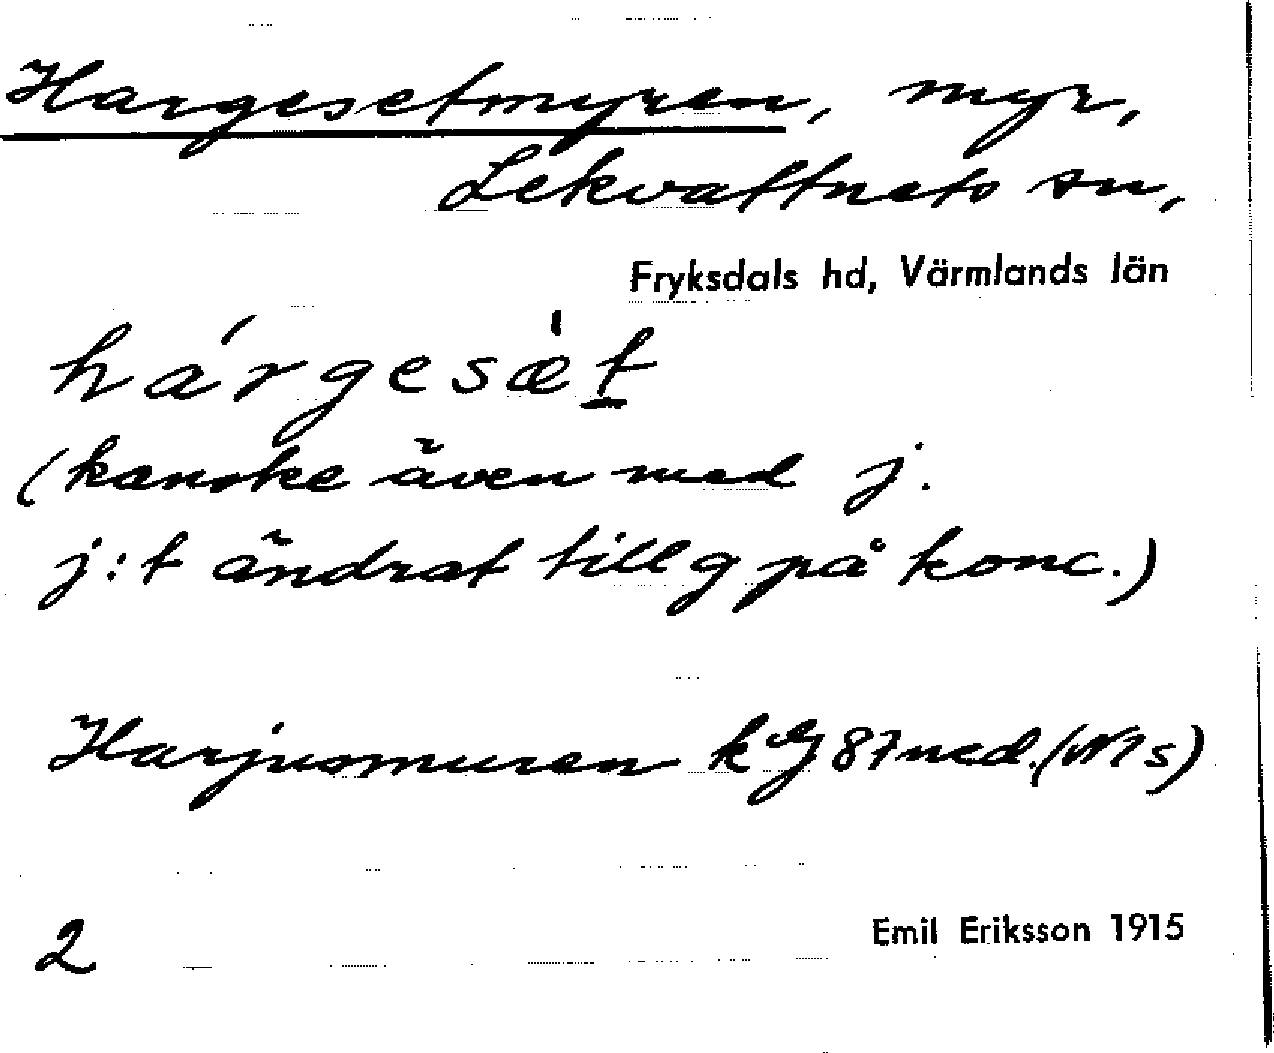 Hargesetmyren, myr,
Lekvattnets sn,
Fryksdals hd, Värmlands län
hárgesæ̀t
(kanske även med j.
j:t ändrat till g på konc.)
Harjusmuren k
87 ned. (N1s)
2
Emil Eriksson 1915